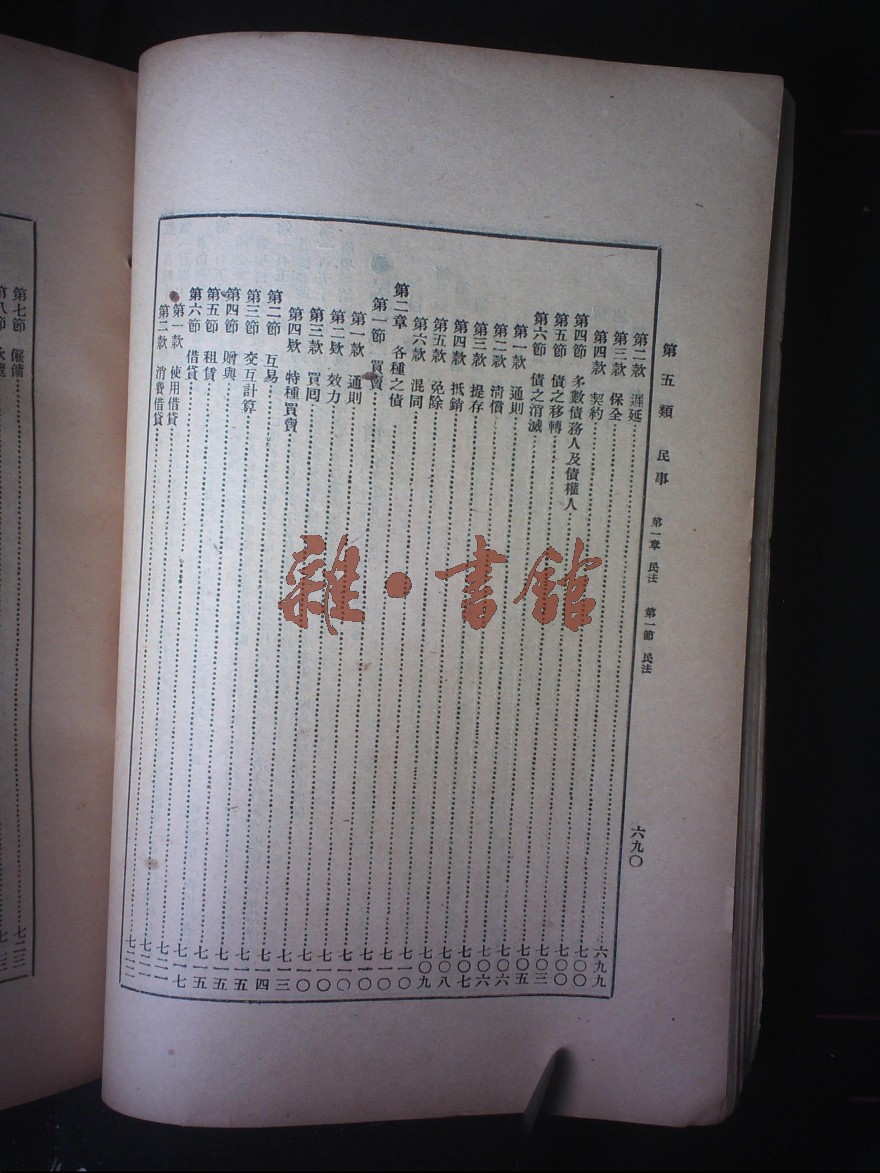 第五類 民事 第一章 民法 第一節 民法 六九〇
第二款 遲延 六九九
第三款 保全 七〇〇
第四款 契約 七〇〇
第四節 多數債務人及債權人 七〇三
第五節 債之移轉 七〇五
第六節 債之消滅 七〇六
第一款 通則 七〇六
第二款 清償 七〇七
第三款 提存 七〇八
第四款 抵銷 七〇九
第五款 免除 七一〇
第六款 混同 七一〇
第二章 各種之債 七一〇
第一節 買賣 七一〇
第一款 通則 七一〇
第二款 效力 七一〇
第三款 買囘 七一三
第四款 特種買賣 七一四
第二節 互易 七一五
第三節 交互計算 七一五
第四節 贈與 七一五
第五節 租賃 七一七
第六節 借貸 七二一
第一款 使用借貸 七二一
第二款 消費借貸 七二二
第七節 僱傭 七二三
雜·書館